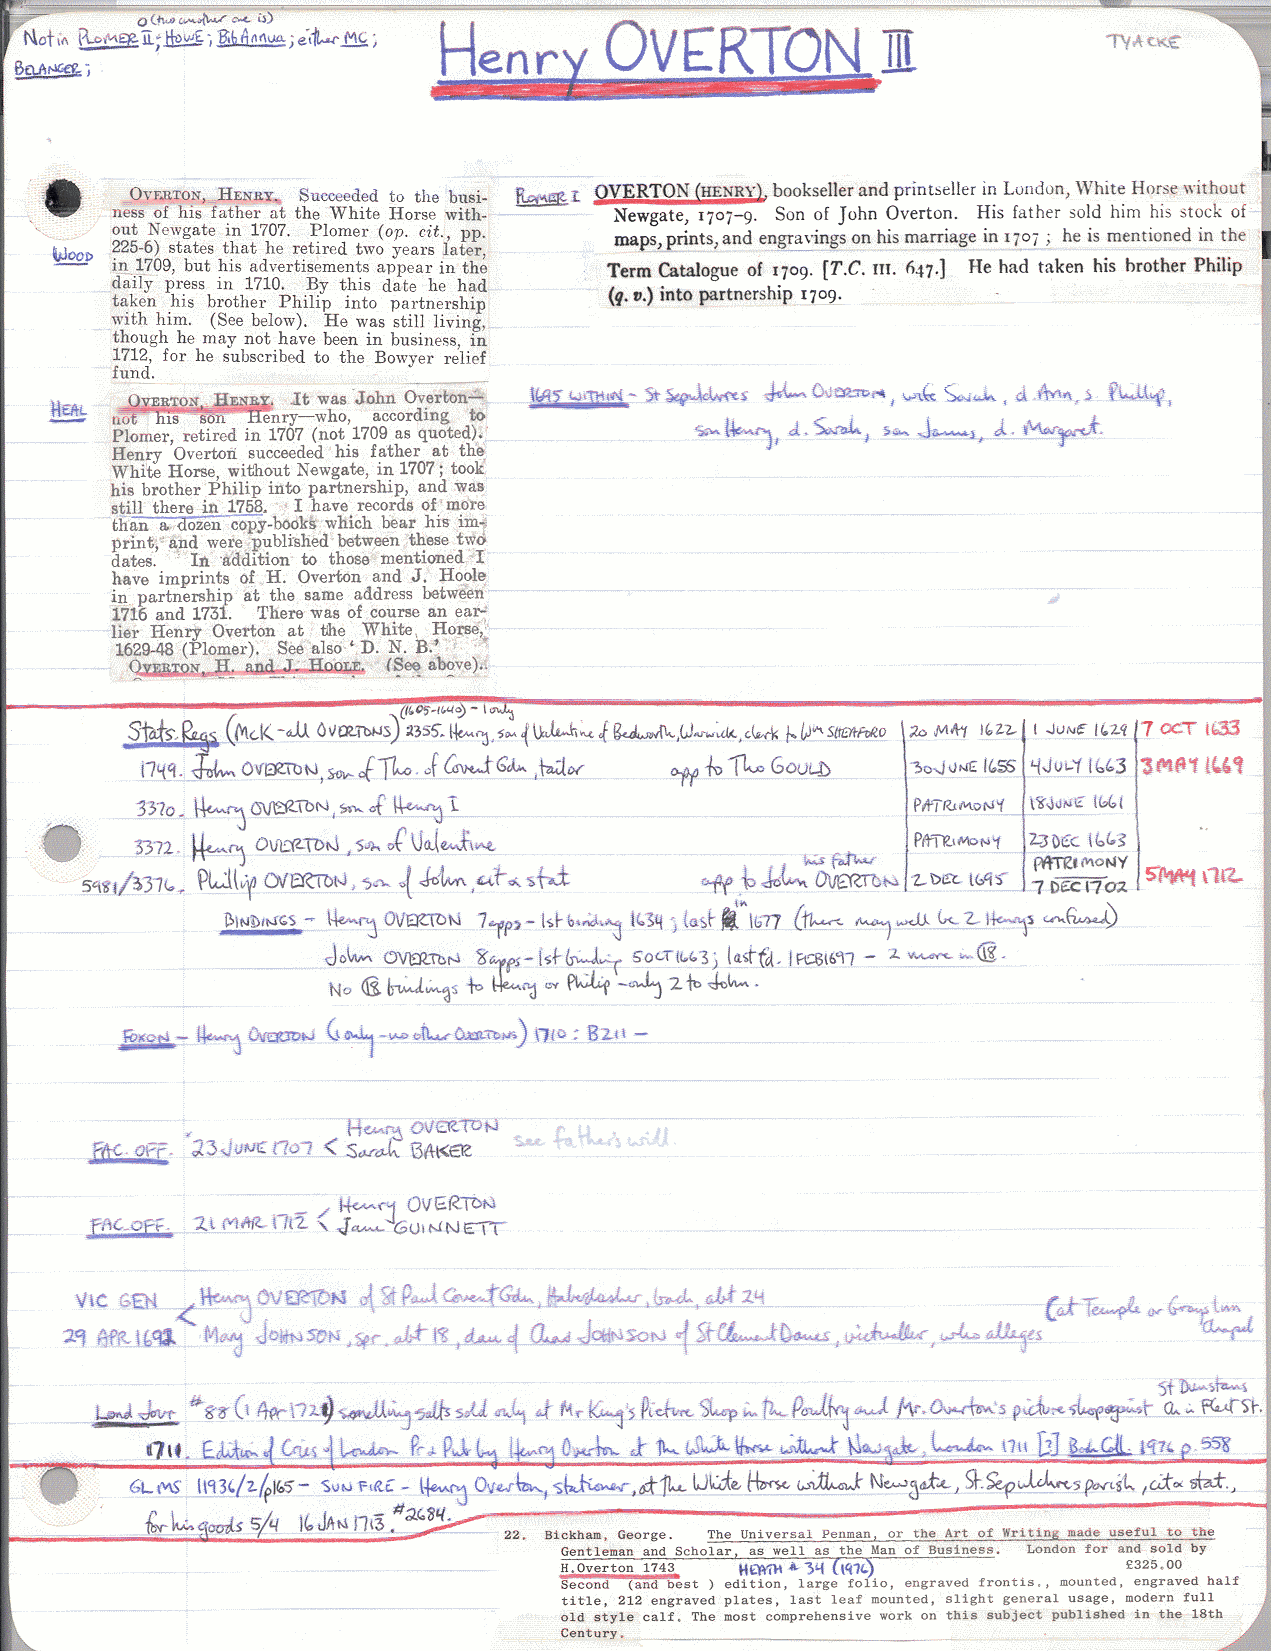 0 (two another one is)
Not in PLOMER II; HOWE; Bib Annua; either MC;
BELANGER;
Henry OVERTON III
TYACKE
WOOD
OVERTON, HENRY. Succeeded to the busi-
ness of his father at the White Horse with-
out Newgate in 1707. Plomer (op. cit., pp.
225-6) states that he retired two years later,
in 1709, but his advertisements appear in the
daily press in 1710. By this date he had
taken his brother Philip into partnership
with him. (See below). He was still living,
though he may not have been in business, in
1712, for he subscribed to the Bowyer relief
fund.
PLOMER I
OVERTON (HENRY), bookseller and printseller in London, White Horse without
Newgate, 1707-9. Son of John Overton. His father sold him his stock of
maps, prints, and engravings on his marriage in 1707; he is mentioned in the
Term Catalogue of 1709. [T.C. III. 647.] He had taken his brother Philip
(q. v.) into partnership 1709.
HEAL
OVERTON, HENRY. It was John Overton—
not his son Henry—who, according to
Plomer, retired in 1707 (not 1709 as quoted).
Henry Overton succeeded his father at the
White Horse, without Newgate, in 1707; took
his brother Philip into partnership, and was
still there in 1758. I have records of more
than a dozen copy-books which bear his im-
print, and were published between these two
dates. In addition to those mentioned I
have imprints of H. Overton and J. Hoole
in partnership at the same address between
1716 and 1731. There was of course an ear-
lier Henry Overton at the White Horse,
1629-48 (Plomer). See also ‘D. N. B.’
OVERTON, H. and J. HOOLE. (See above).
1695 WITHIN - St Sepulchres John OVERTON, wife Sarah, d. Ann, s. Phillip,
son Henry, d. Sarah, son James, d. Margaret.
(1605-1640) - 1 only
Stats. Regs (McK - all OVERTONS) 2355. Henry, son of Valentine of Bedworth, Warwick, clerk to Wm SHEAFORD 20 MAY 1622 1 JUNE 1629 7 OCT 1633
1749. John OVERTON, son of Tho. of Covent Gdn, tailor app to Tho GOULD 30 JUNE 1655 4 JULY 1663 3 MAY 1669
3370. Henry OVERTON, son of Henry I PATRIMONY 18 JUNE 1661
3372. Henry OVERTON, son of Valentine PATRIMONY 23 DEC 1663
5981/3376. Phillip OVERTON, son of John, cit & stat app to his father John OVERTON 2 DEC 1695 PATRIMONY 7 DEC 1702 5 MAY 1712
BINDINGS - Henry OVERTON 7 apps - 1st binding 1634; last in 1677 (there may well be 2 Henrys confused)
John OVERTON 8 apps - 1st binding 5 OCT 1663; last fd. 1 FEB 1697 - 2 more in 18.
No 18 bindings to Henry or Philip - only 2 to John.
FOXON - Henry OVERTON (1 only - no other OVERTONS) 1710: B211 -
FAC. OFF. 23 JUNE 1707 < Henry OVERTON
Sarah BAKER
see father's will.
FAC. OFF. 21 MAR 1712 < Henry OVERTON
Jane GUINNETT
VIC GEN
29 APR 1692 < Henry OVERTON of St Paul Covent Gdn, Haberdasher, bach, abt 24
Mary JOHNSON, spr, abt 18, dau of Chas JOHNSON of St Clement Danes, victualler, who alleges
(at Temple or Grays Inn
Chapel
Lond Jour #88 (1 Apr 1721) smelling salts sold only at Mr King's Picture Shop in the Poultry and Mr. Overton's picture shop against St Dunstans Ch in Fleet St.
1711. Edition of Cries of London Pr & Pub by Henry Overton at the White Horse without Newgate, London 1711 [?] Book Coll. 1976 p. 558
GL MS 11936/2/p165 - SUN FIRE - Henry Overton, stationer, at the White Horse without Newgate, St. Sepulchres parish, cit & stat.,
for his goods 5/4 16 JAN 1713. #2684.
22. Bickham, George. The Universal Penman, or the Art of Writing made useful to the
Gentleman and Scholar, as well as the Man of Business. London for and sold by
H.Overton 1743 HEATH # 34 (1976) £325.00
Second (and best ) edition, large folio, engraved frontis., mounted, engraved half
title, 212 engraved plates, last leaf mounted, slight general usage, modern full
old style calf. The most comprehensive work on this subject published in the 18th
Century.